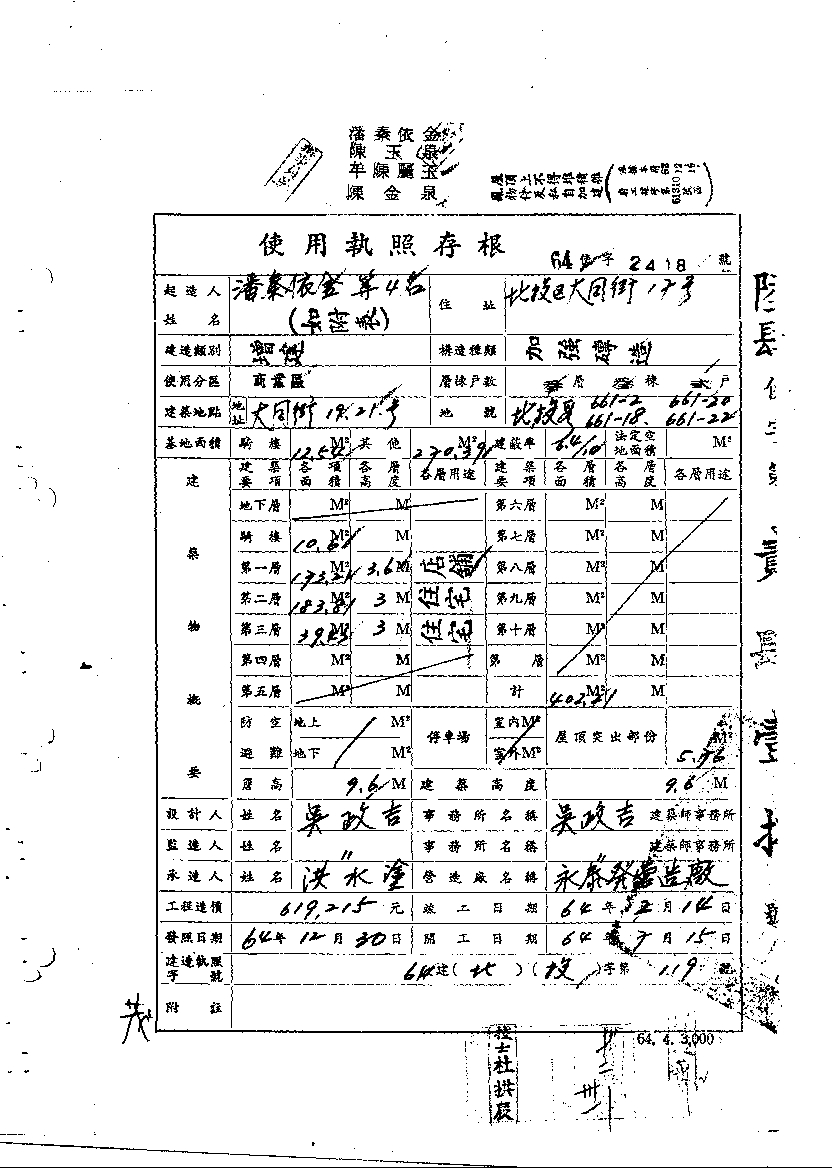 潘秦依金
陳玉泉
牟陳麗玉
陳金泉
屋頂上不得堆積雜
亂物件及私自加建
使用執照存根
64 使字 2418 號
起造人姓名 潘秦依金等4名 (如附表) 住址 北投區大同街17號
建造類別 增建 構造種類 加強磚造
使用分區 商業區 層棟戶數 層 棟 戶
建築地點 地址 大同街19.21.號 地號 北投段 661-2 661-20 661-18. 661-22
基地面積 騎樓 12.54 M² 其他 270.39 M² 建蔽率 6.4/10 法定空地面積 M²
建築物概要
建築要項 各項面積 各層高度 各層用途 建築要項 各層面積 各層高度 各層用途
地下層 M² M 第六層 M² M
騎樓 10.61 M² M 第七層 M² M
第一層 173.21 M² 3.6 M 店舖 第八層 M² M
第二層 183.81 M² 3 M 住宅 第九層 M² M
第三層 M² 3 M 住宅 第十層 M² M
第四層 M² M 第 層 M² M
第五層 M² M 計 M² M
防空避難 地上 M² 停車場 室內M² 屋頂突出部份 M²
地下 M² 室外M² 5.76
簷高 9.6 M 建築高度 9.6 M
設計人 姓名 吳政吉 事務所名稱 吳政吉 建築師事務所
監造人 姓名 〃 事務所名稱 〃 建築師事務所
承造人 姓名 洪水塗 營造廠名稱 永泰發營造廠
工程造價 619,215 元 竣工日期 64年12月14日
發照日期 64年12月30日 開工日期 64年7月15日
建造執照字號 64建(北)(投)字第 119 號
附註
茂
64. 4. 3,000
技士杜拱辰